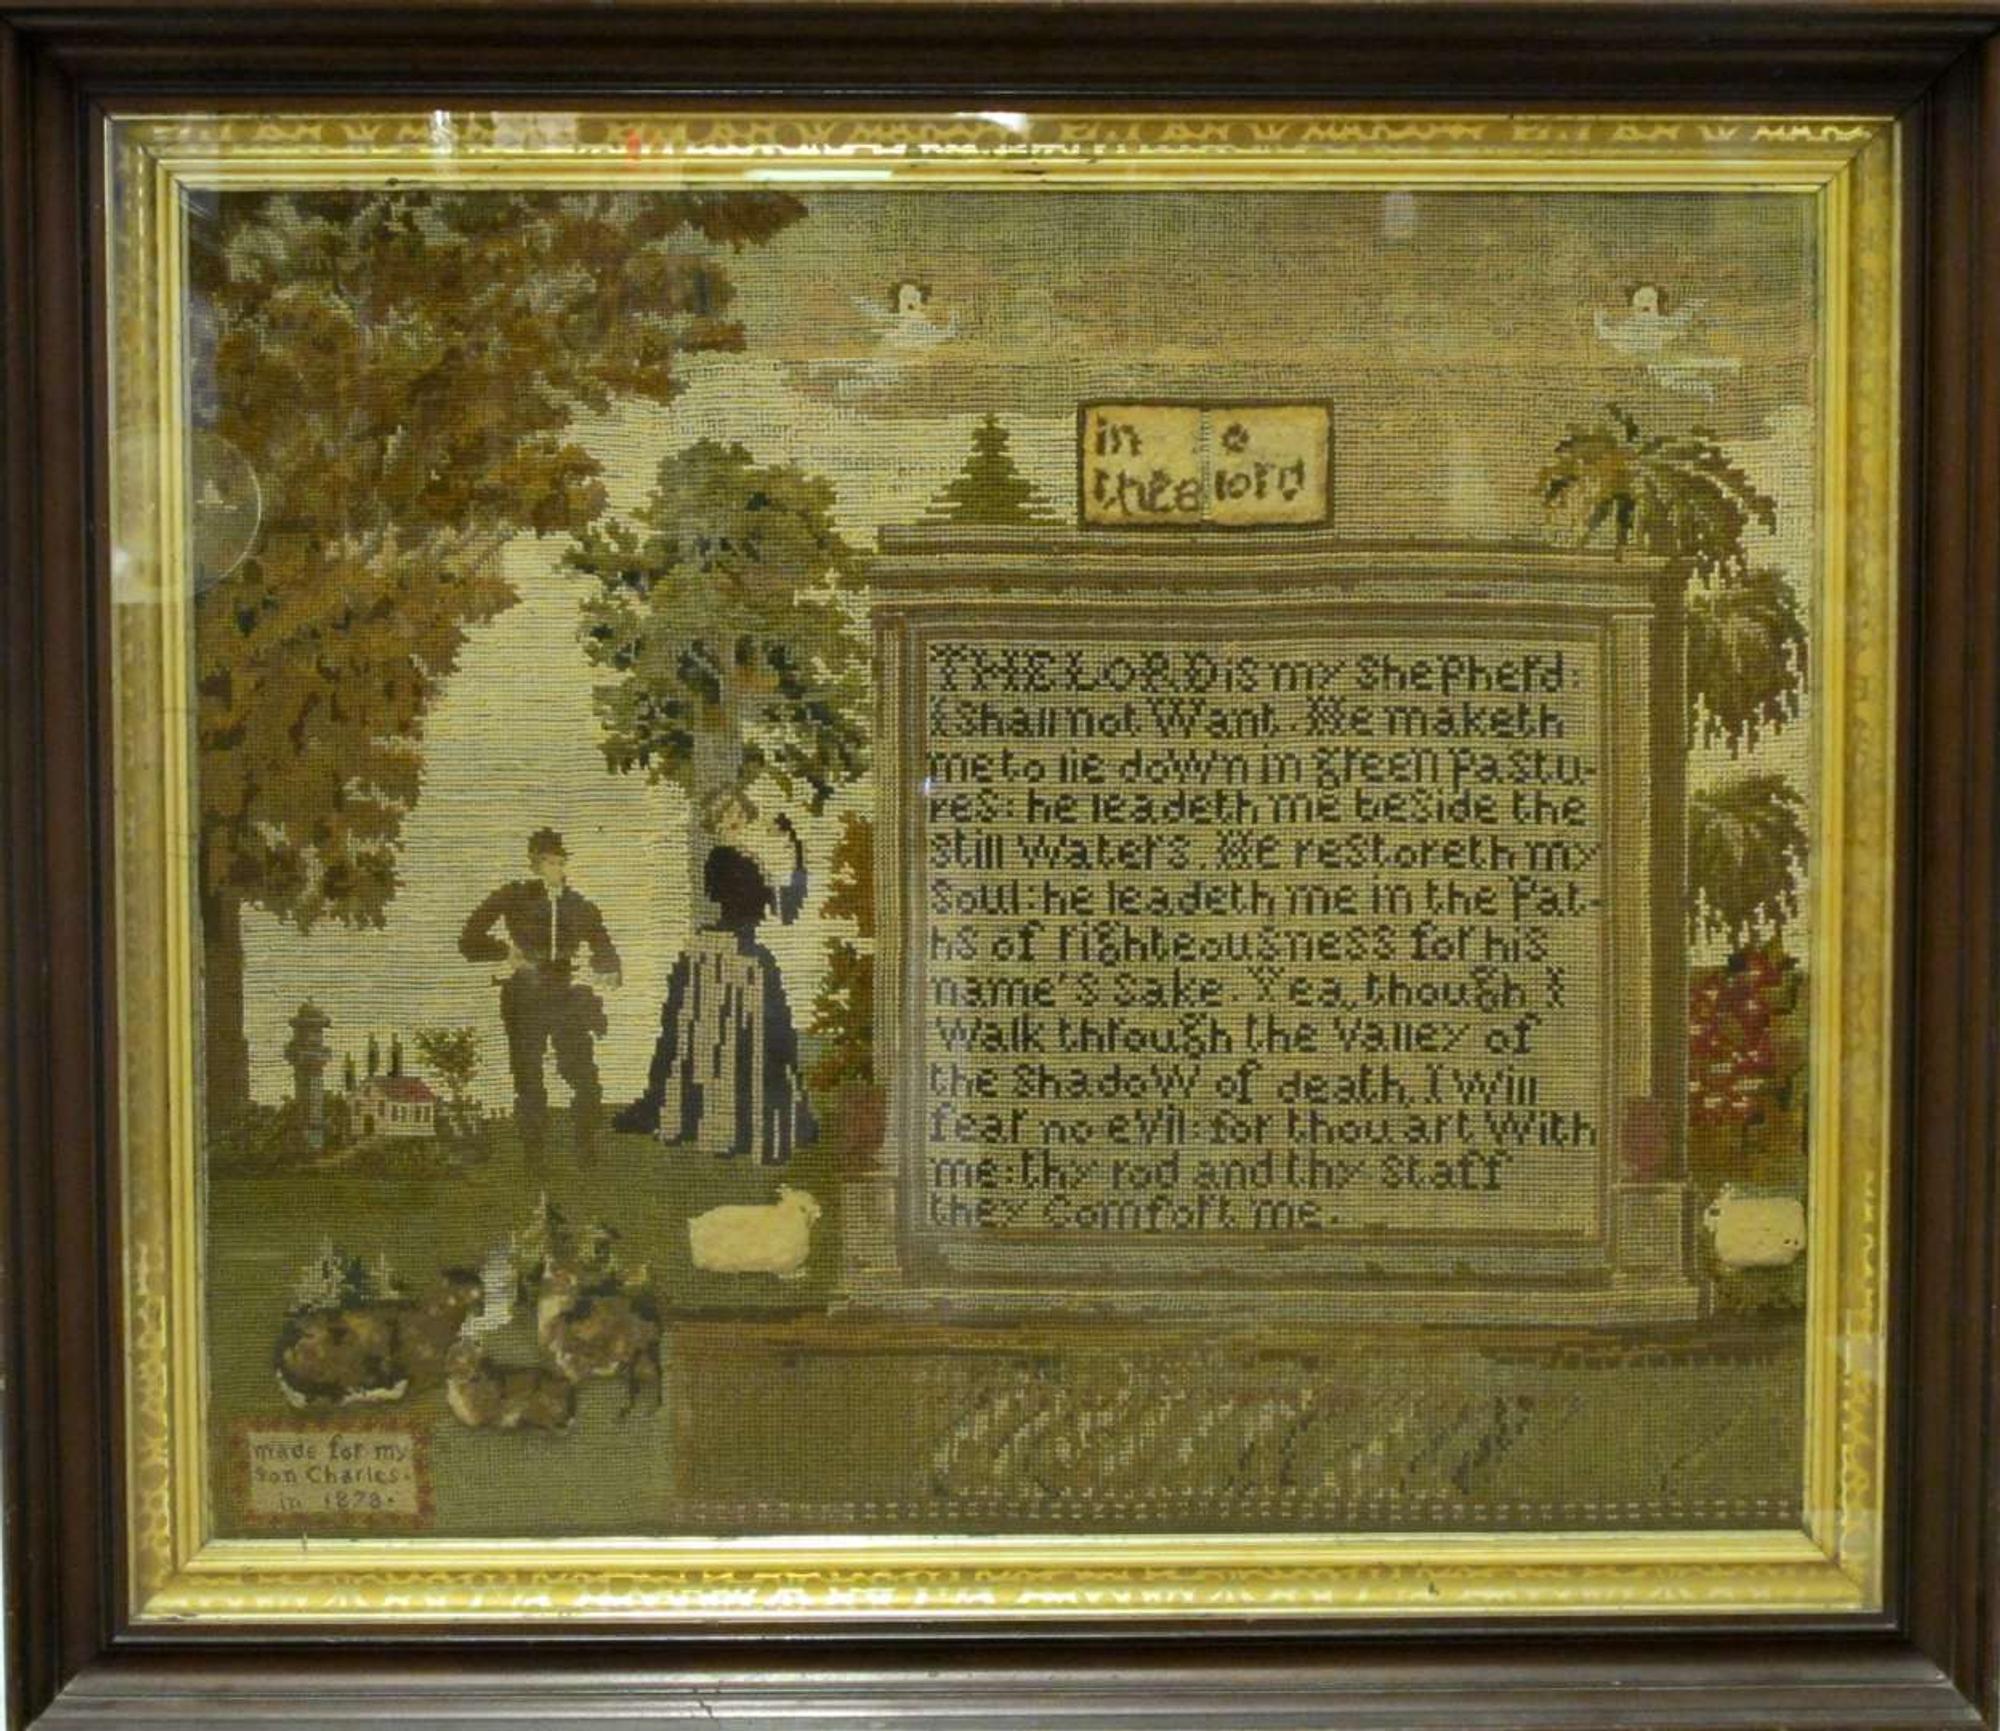 in
thee
o
lord
THE LORD is my shepherd:
I shall not Want. He maketh
me to lie down in green pastu-
res: he leadeth me beside the
still waters. He restoreth my
Soul: he leadeth me in the Pat-
hs of righteousness for his
name's sake. Yea, though I
Walk through the Valley of
the shadow of death, I will
fear no evil: for thou art with
me: thy rod and thy staff
they Comfort me.
made for my
son Charles.
in 1878.